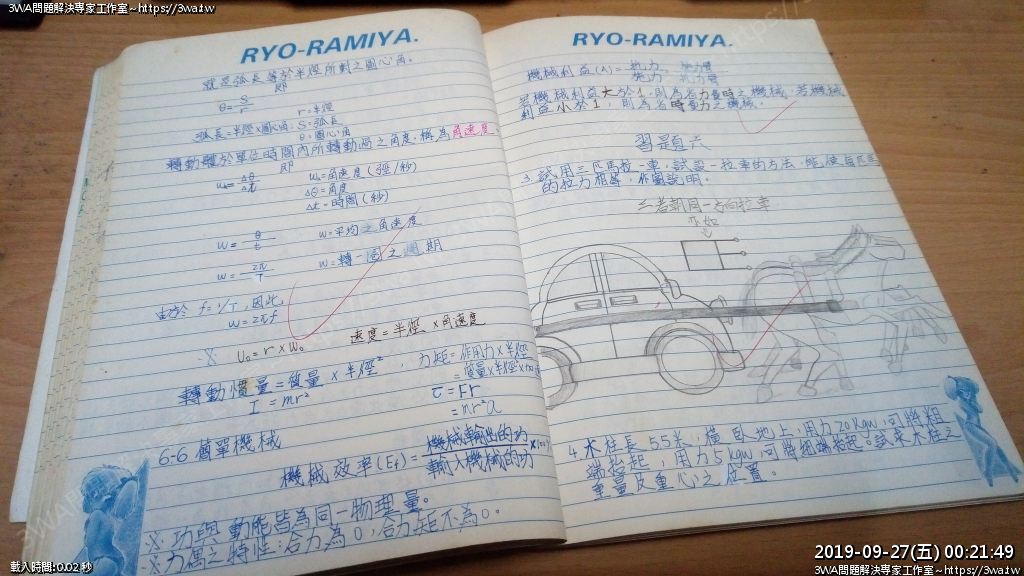 3WA問題解決專家工作室~https://3wa.tw
3WA問題解決專家工作室~https://3wa.tw
RYO-RAMIYA.
就是弧長等於半徑所對之圓心角。
即
θ=S/r
r=半徑
弧長=半徑×圓心角 S=弧長
θ=圓心角
轉動體於單位時間內所轉動過之角度,稱為角速度。
即
Δθ/Δt
角速度(弳/秒)
Δθ=角度
Δt=時間(秒)
w=θ/t
w=平均之角速度
w=2π/T
w=轉一圈之週期
由於 f=1/T,因此,
w=2πf
※ U₀=r×W₀
速度=半徑×角速度
轉動慣量=質量×半徑², 力矩=作用力×半徑
I=mr²
τ=Fr
=mr²α
6-6 簡單機械
機械效率(Ef)=機械輸出的功/輸入機械的功
※功與動能皆為同一物理量。
※力偶之特性:合力為0,合力矩不為0。
RYO-RAMIYA.
機械利益(A)=
若機械利益大於1,則為省力費時之機械,若機械
利益小於1,則為省時費力之機械。
習題六
3.試用三匹馬拉一車,試設一拉車的方法,能使每匹馬
的拉力相等,作圖說明。
三者朝同一方向拉車
4.木柱長55米,橫臥地上,用力70kgw,可將粗
端抬起,用力5kgw,可將細端抬起。試求木柱之
重量及重心之位置。
載入時間:0.02 秒
2019-09-27(五) 00:21:49
3WA問題解決專家工作室~https://3wa.tw